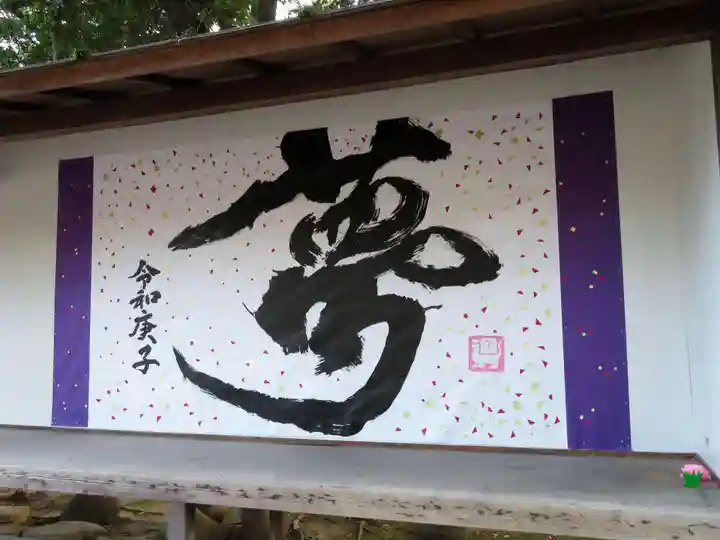 夢
令和庚子